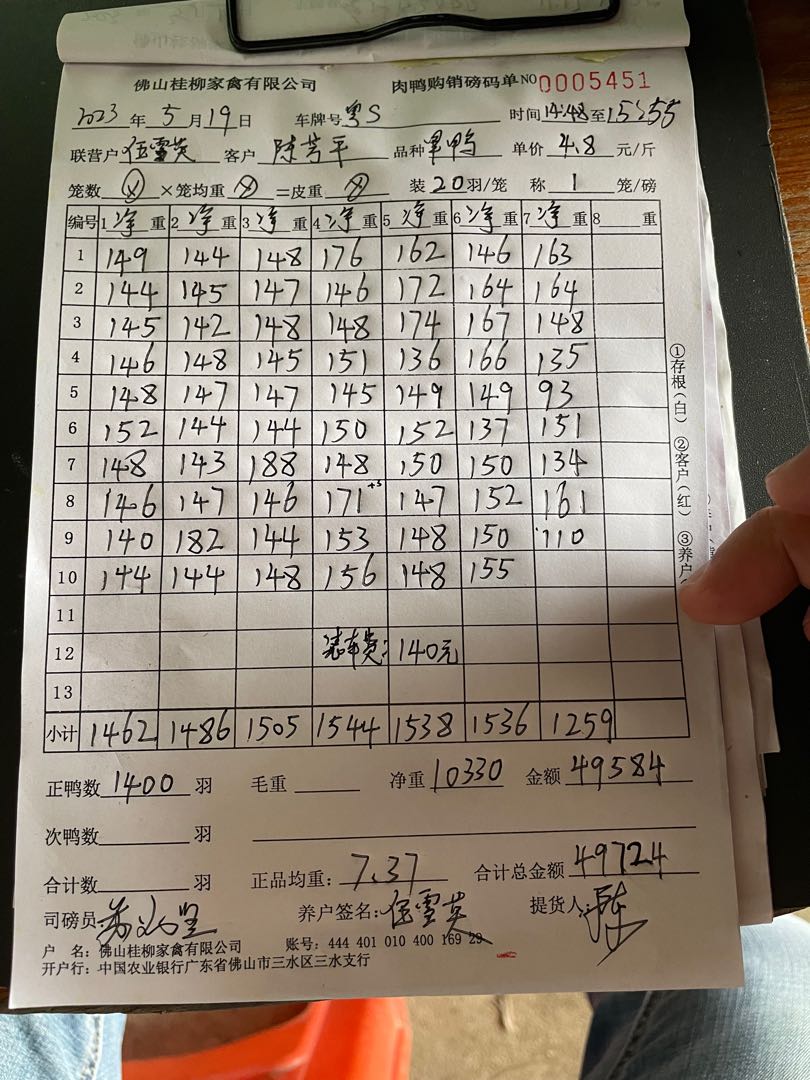 佛山桂柳家禽有限公司 肉鸭购销磅码单 NO 0005451
2023 年 5 月 19 日 车牌号 粤S 时间 14:48 至 15:55
联营户 伍雪英 客户 陈芳平 品种 单价 4.8 元/斤
笼数 ×笼均重 =皮重 装 20 羽/笼 称 1 笼/磅
编号 1 净 重 2 净 重 3 净 重 4 净 重 5 净 重 6 净 重 7 净 重 8 重
1 149 144 148 176 162 146 163
2 144 145 147 146 172 164 164
3 145 142 148 148 174 167 148
4 146 148 145 151 136 166 135
5 148 147 147 145 149 149 93
6 152 144 144 150 152 137 151
7 148 143 188 148 150 150 134
8 146 147 146 171 +3 147 152 161
9 140 182 144 153 148 150 110
10 144 144 148 156 148 155
11
12 装车费: 140元
13
小计 1462 1486 1505 1544 1538 1536 1259
正鸭数 1400 羽 毛重 净重 10330 金额 49584
次鸭数 羽
合计数 羽 正品均重: 7.37 合计总金额 49724
司磅员 养户签名: 伍雪英 提货人: 陈
户 名: 佛山桂柳家禽有限公司 账号: 444 401 010 400 169 29
开户行: 中国农业银行广东省佛山市三水区三水支行
①存根(白) ②客户(红) ③养户